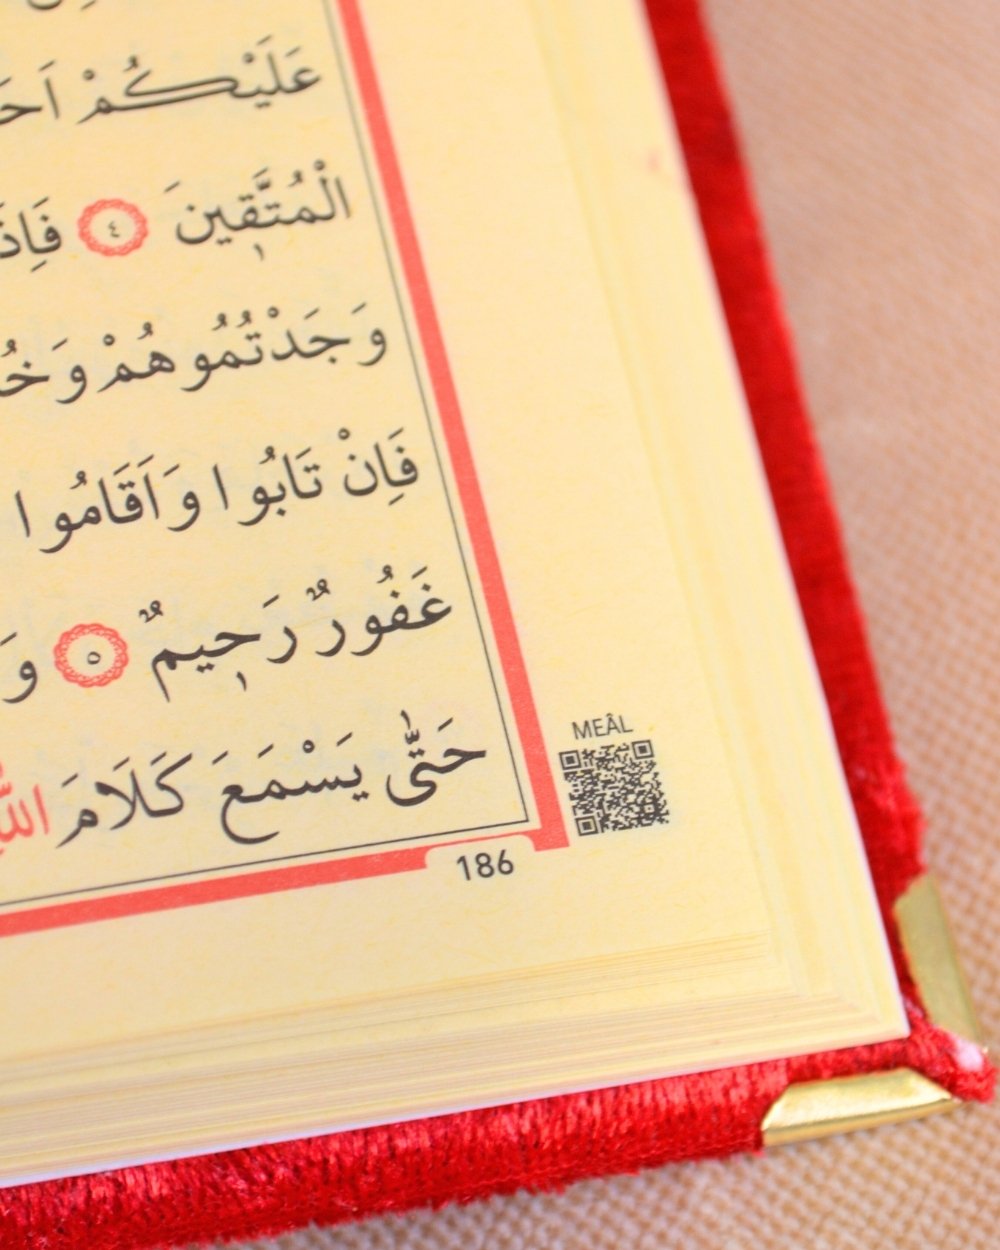 عَلَيْكُمْ اَحَ
الْمُتَّق۪ينَ ٤ فَاِذَ
وَجَدْتُمُوهُمْ وَخُ
فَاِنْ تَابُوا وَاَقَامُوا
غَفُورٌ رَح۪يمٌ ٥ وَ
حَتّٰى يَسْمَعَ كَلَامَ اللّٰهِ
MEÂL
186